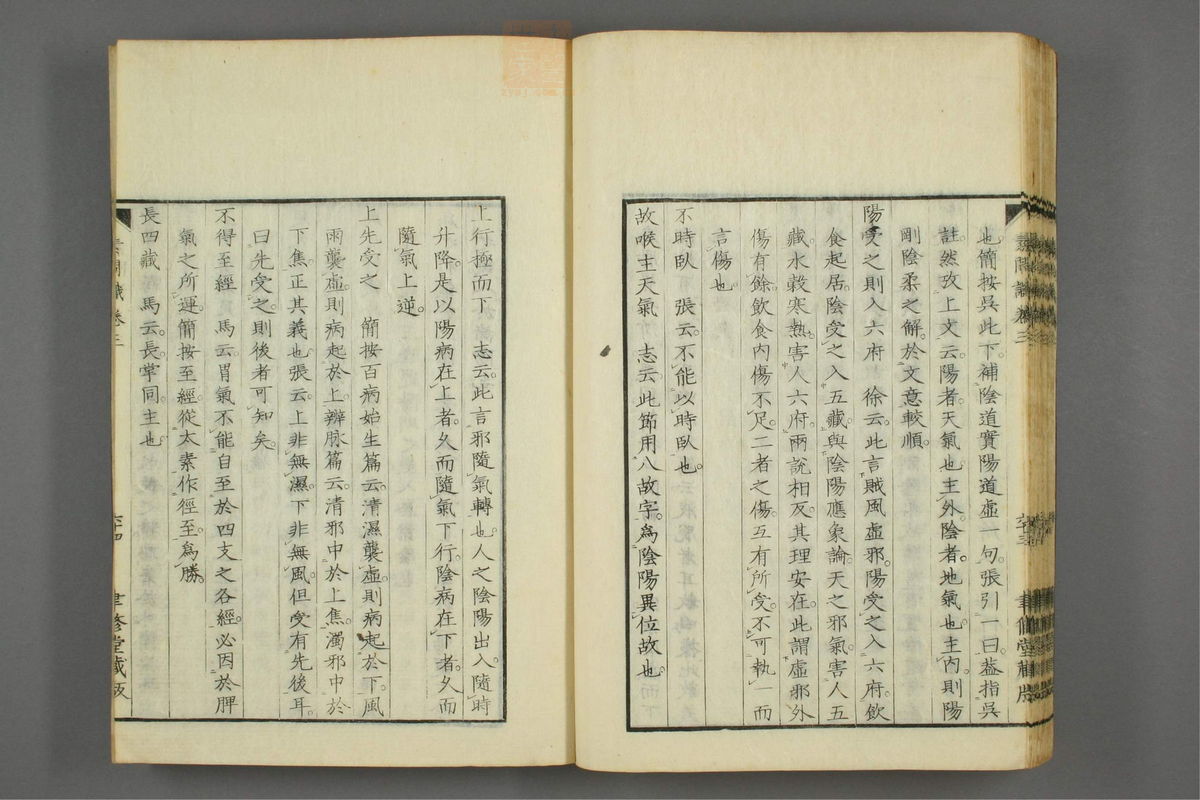 也簡按吳此下補陰道實陽道虛一句張引一曰葢指吳
註然攷上文云陽者天氣也主外陰者地氣也主內則陽
剛陰柔之解於文意較順
陽受之則入六府 徐云此言賊風虛邪陽受之入六府飲
食起居陰受之入五藏與陰陽應象論天之邪氣害人五
藏水穀寒熱害人六府兩說相反其理安在此謂虛邪外
傷有餘飲食內傷不足二者之傷互有所受不可執一而
言傷也
不時臥 張云不能以時臥也
故喉主天氣 志云此節用八故字爲陰陽異位故也
上行極而下 志云此言邪隨氣轉也人之陰陽出入隨時
升降是以陽病在上者久而隨氣下行陰病在下者久而
隨氣上逆
上先受之 簡按百病始生篇云清濕襲虛則病起於下風
雨襲虛則病起於上辨脉篇云清邪中於上焦濁邪中於
下焦正其義也張云上非無濕下非無風但受有先後耳
曰先受之則後者可知矣
不得至經 馬云胃氣不能自至於四支之各經必因於脾
氣之所運簡按至經從太素作徑至爲勝
長四藏 馬云長掌同主也
素問識卷三 六十四 聿修堂藏板